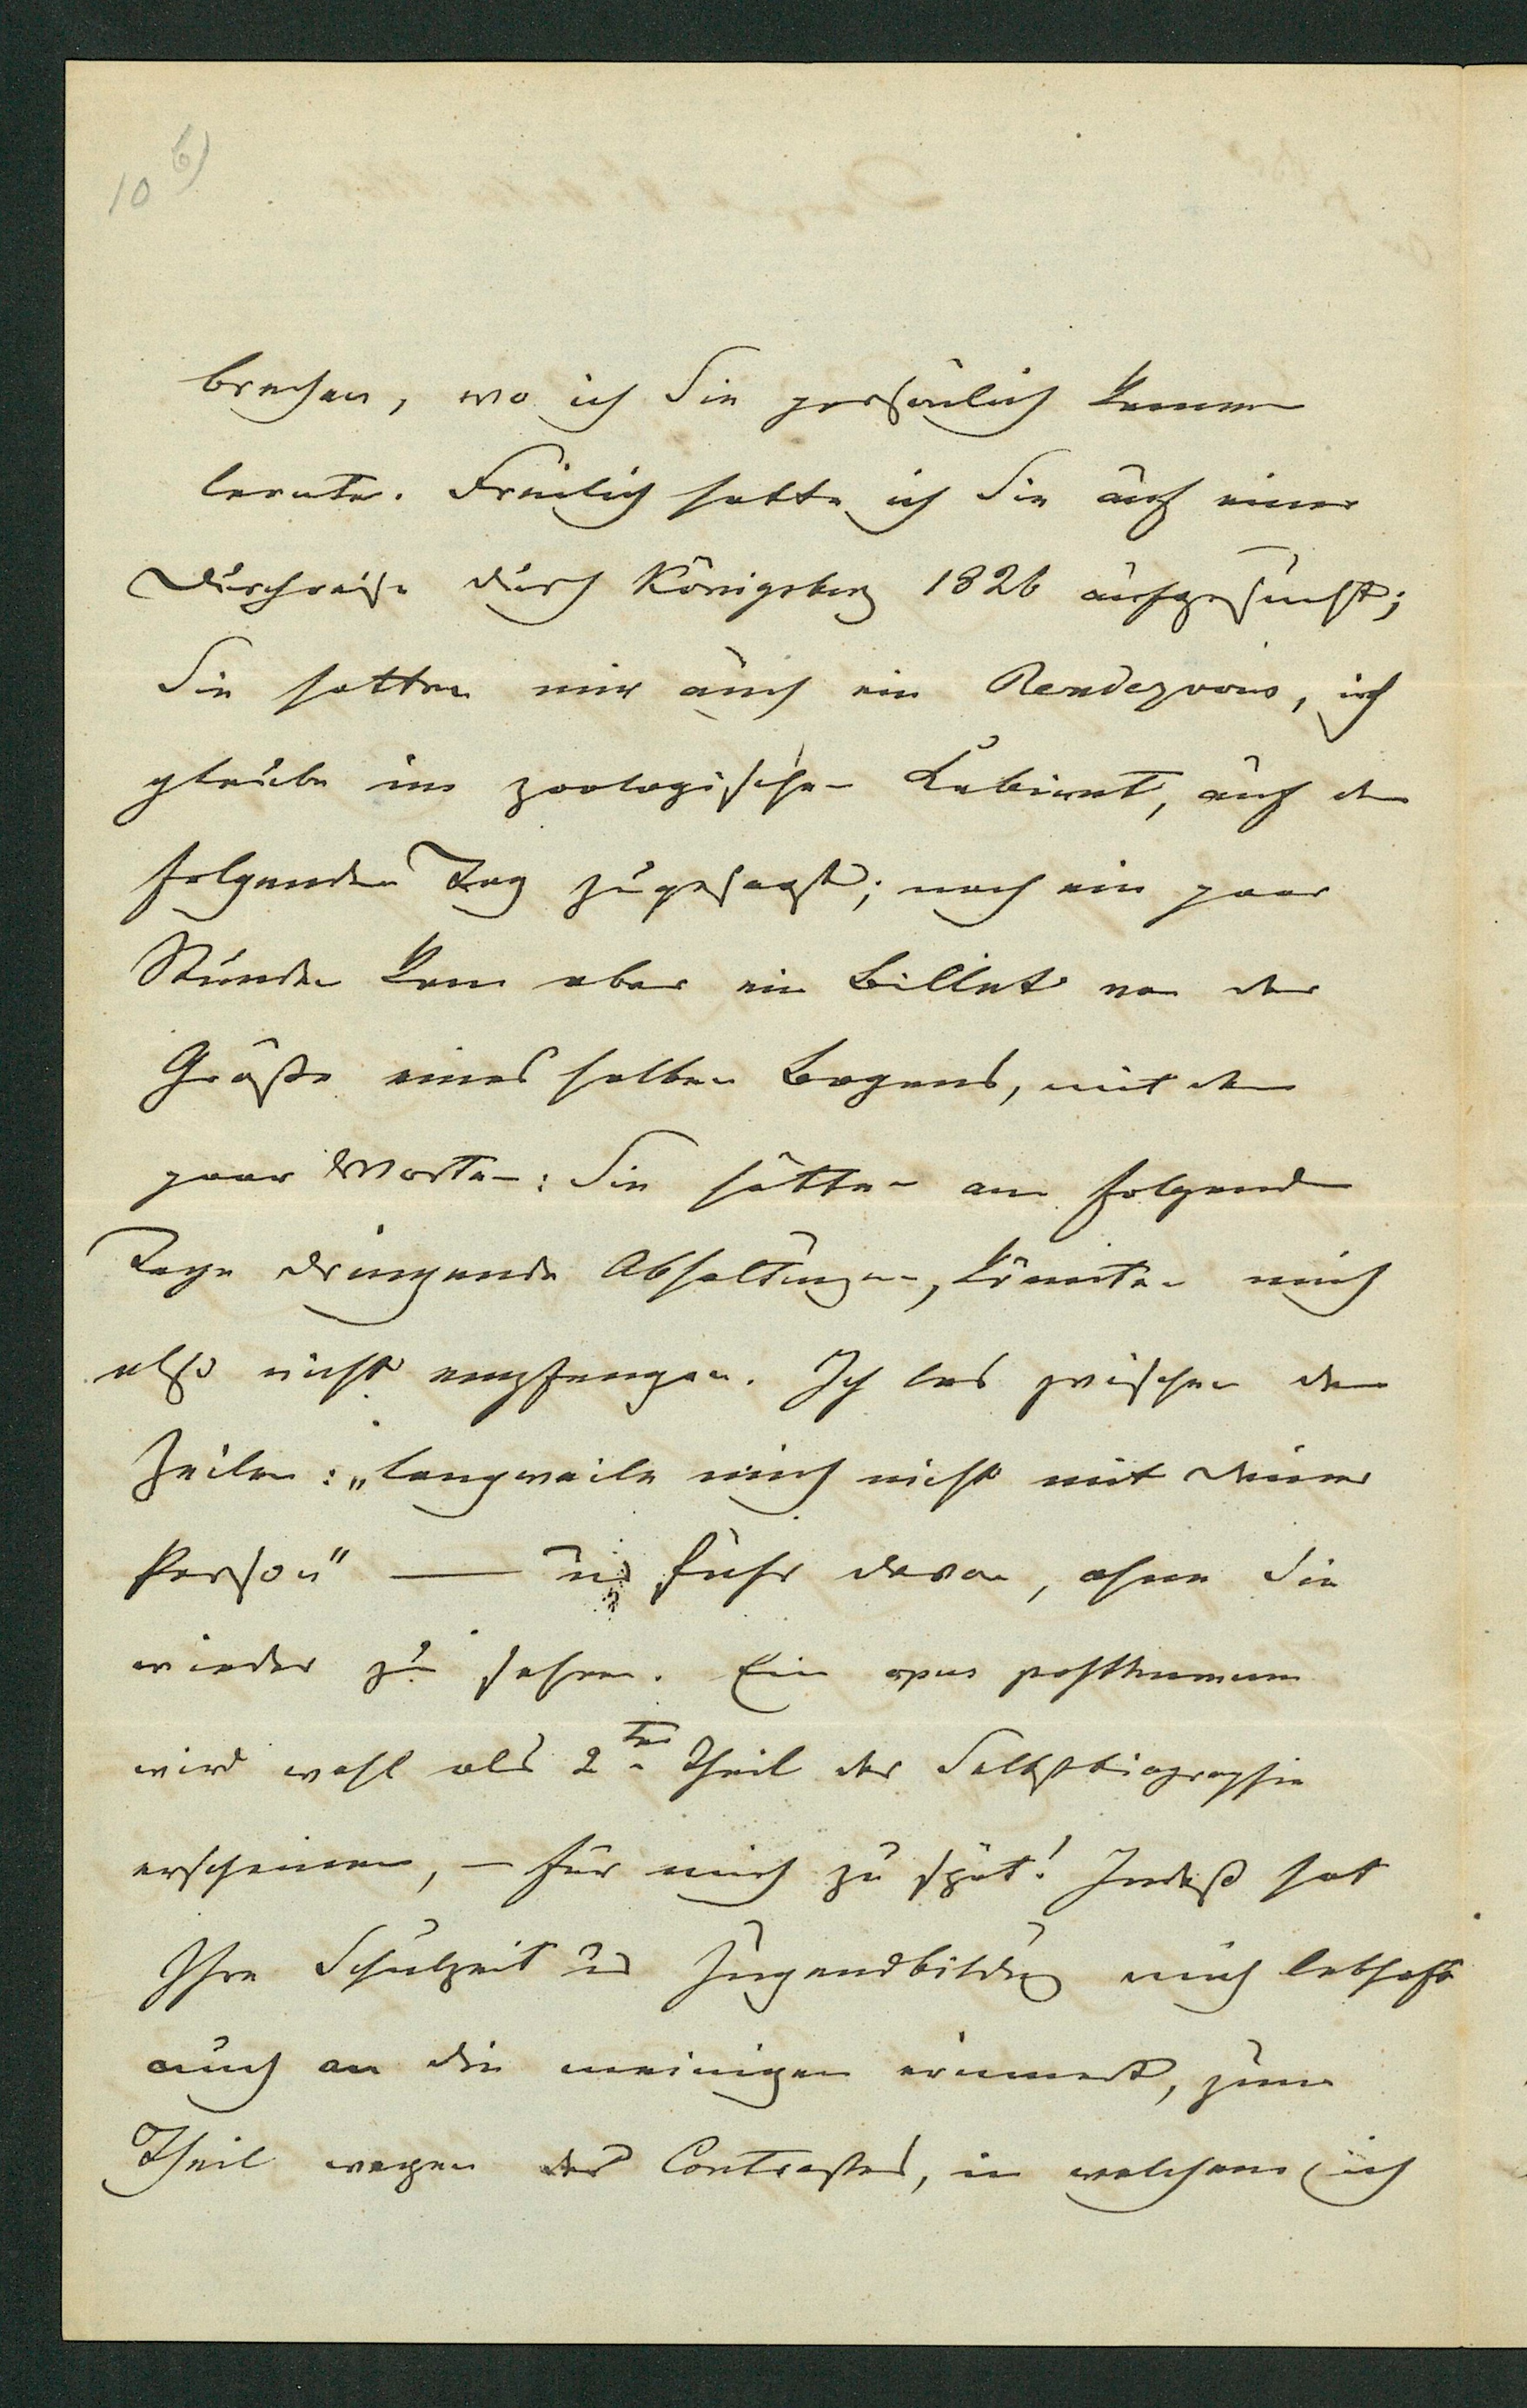 10 b)
brechen, wo ich Sie persönlich kennen
lernte. Freilich hatte ich Sie auf einer
Durchreise durch Königsberg 1826 aufgesucht;
Sie hatten mir auch ein Rendezvous, ich
glaube im zoologischen Kabinet, auf den
folgenden Tag zugesagt; nach ein paar
Stunden kam aber ein Billet von der
Größe eines halben Bogens, mit den
paar Worten: Sie hätten am folgenden
Tage dringende Abhaltungen, könnten mich
also nicht empfangen. Ich las zwischen den
Zeilen: „langweile mich nicht mit deiner
Person" — und fuhr davon, ohne Sie
wieder zu sehen. Ein opus posthumum
wird wohl als 2ter Theil der Selbstbiographie
erscheinen, – für mich zu spät! Indeß hat
Ihre Schulzeit und Jugendbildung mich lebhaft
auch an die meinigen erinnert, zum
Theil wegen des Contrastes, in welchem ich